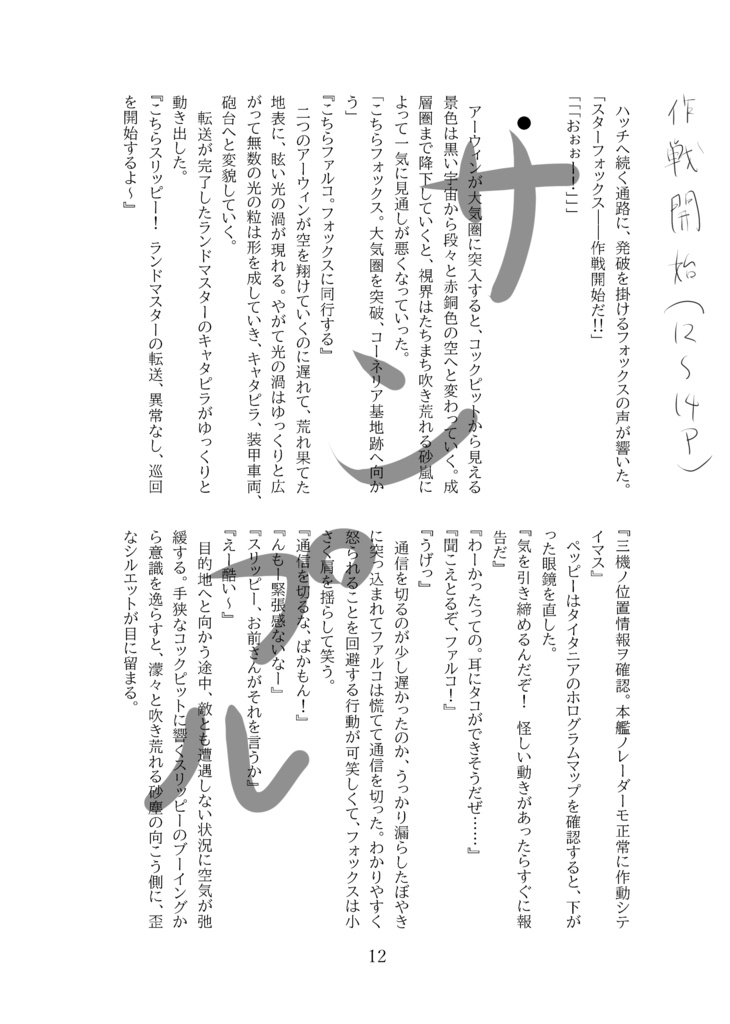 作戦開始(12〜14P)
ハッチへ続く通路に、発破を掛けるフォックスの声が響いた。
「スターフォックス――作戦開始だ!!」
「「「おぉぉー!」」」
●
アーウィンが大気圏に突入すると、コックピットから見える
景色は黒い宇宙から段々と赤銅色の空へと変わっていく。成
層圏まで降下していくと、視界はたちまち吹き荒れる砂嵐に
よって一気に見通しが悪くなっていった。
「こちらフォックス。大気圏を突破、コーネリア基地跡へ向か
う」
『こちらファルコ。フォックスに同行する』
二つのアーウィンが空を翔けていくのに遅れて、荒れ果てた
地表に、眩い光の渦が現れる。やがて光の渦はゆっくりと広
がって無数の光の粒は形を成していき、キャタピラ、装甲車両、
砲台へと変貌していく。
転送が完了したランドマスターのキャタピラがゆっくりと
動き出した。
『こちらスリッピー! ランドマスターの転送、異常なし、巡回
を開始するよ〜』
『三機ノ位置情報ヲ確認。本艦ノレーダーモ正常に作動シテ
イマス』
ペッピーはタイタニアのホログラムマップを確認すると、下が
った眼鏡を直した。
『気を引き締めるんだぞ! 怪しい動きがあったらすぐに報
告だ』
『わーかったっての。耳にタコができそうだぜ……』
『聞こえとるぞ、ファルコ!』
『うげっ』
通信を切るのが少し遅かったのか、うっかり漏らしたぼやき
に突っ込まれてファルコは慌てて通信を切った。わかりやすく
怒られることを回避する行動が可笑しくて、フォックスは小
さく肩を揺らして笑う。
『通信を切るな、ばかもん!』
『んもー緊張感ないなー』
『スリッピー、お前さんがそれを言うか』
『えー酷い〜』
目的地へと向かう途中、敵とも遭遇しない状況に空気が弛
緩する。手狭なコックピットに響くスリッピーのブーイングか
ら意識を逸らすと、濛々と吹き荒れる砂塵の向こう側に、歪
なシルエットが目に留まる。
12
サンプル